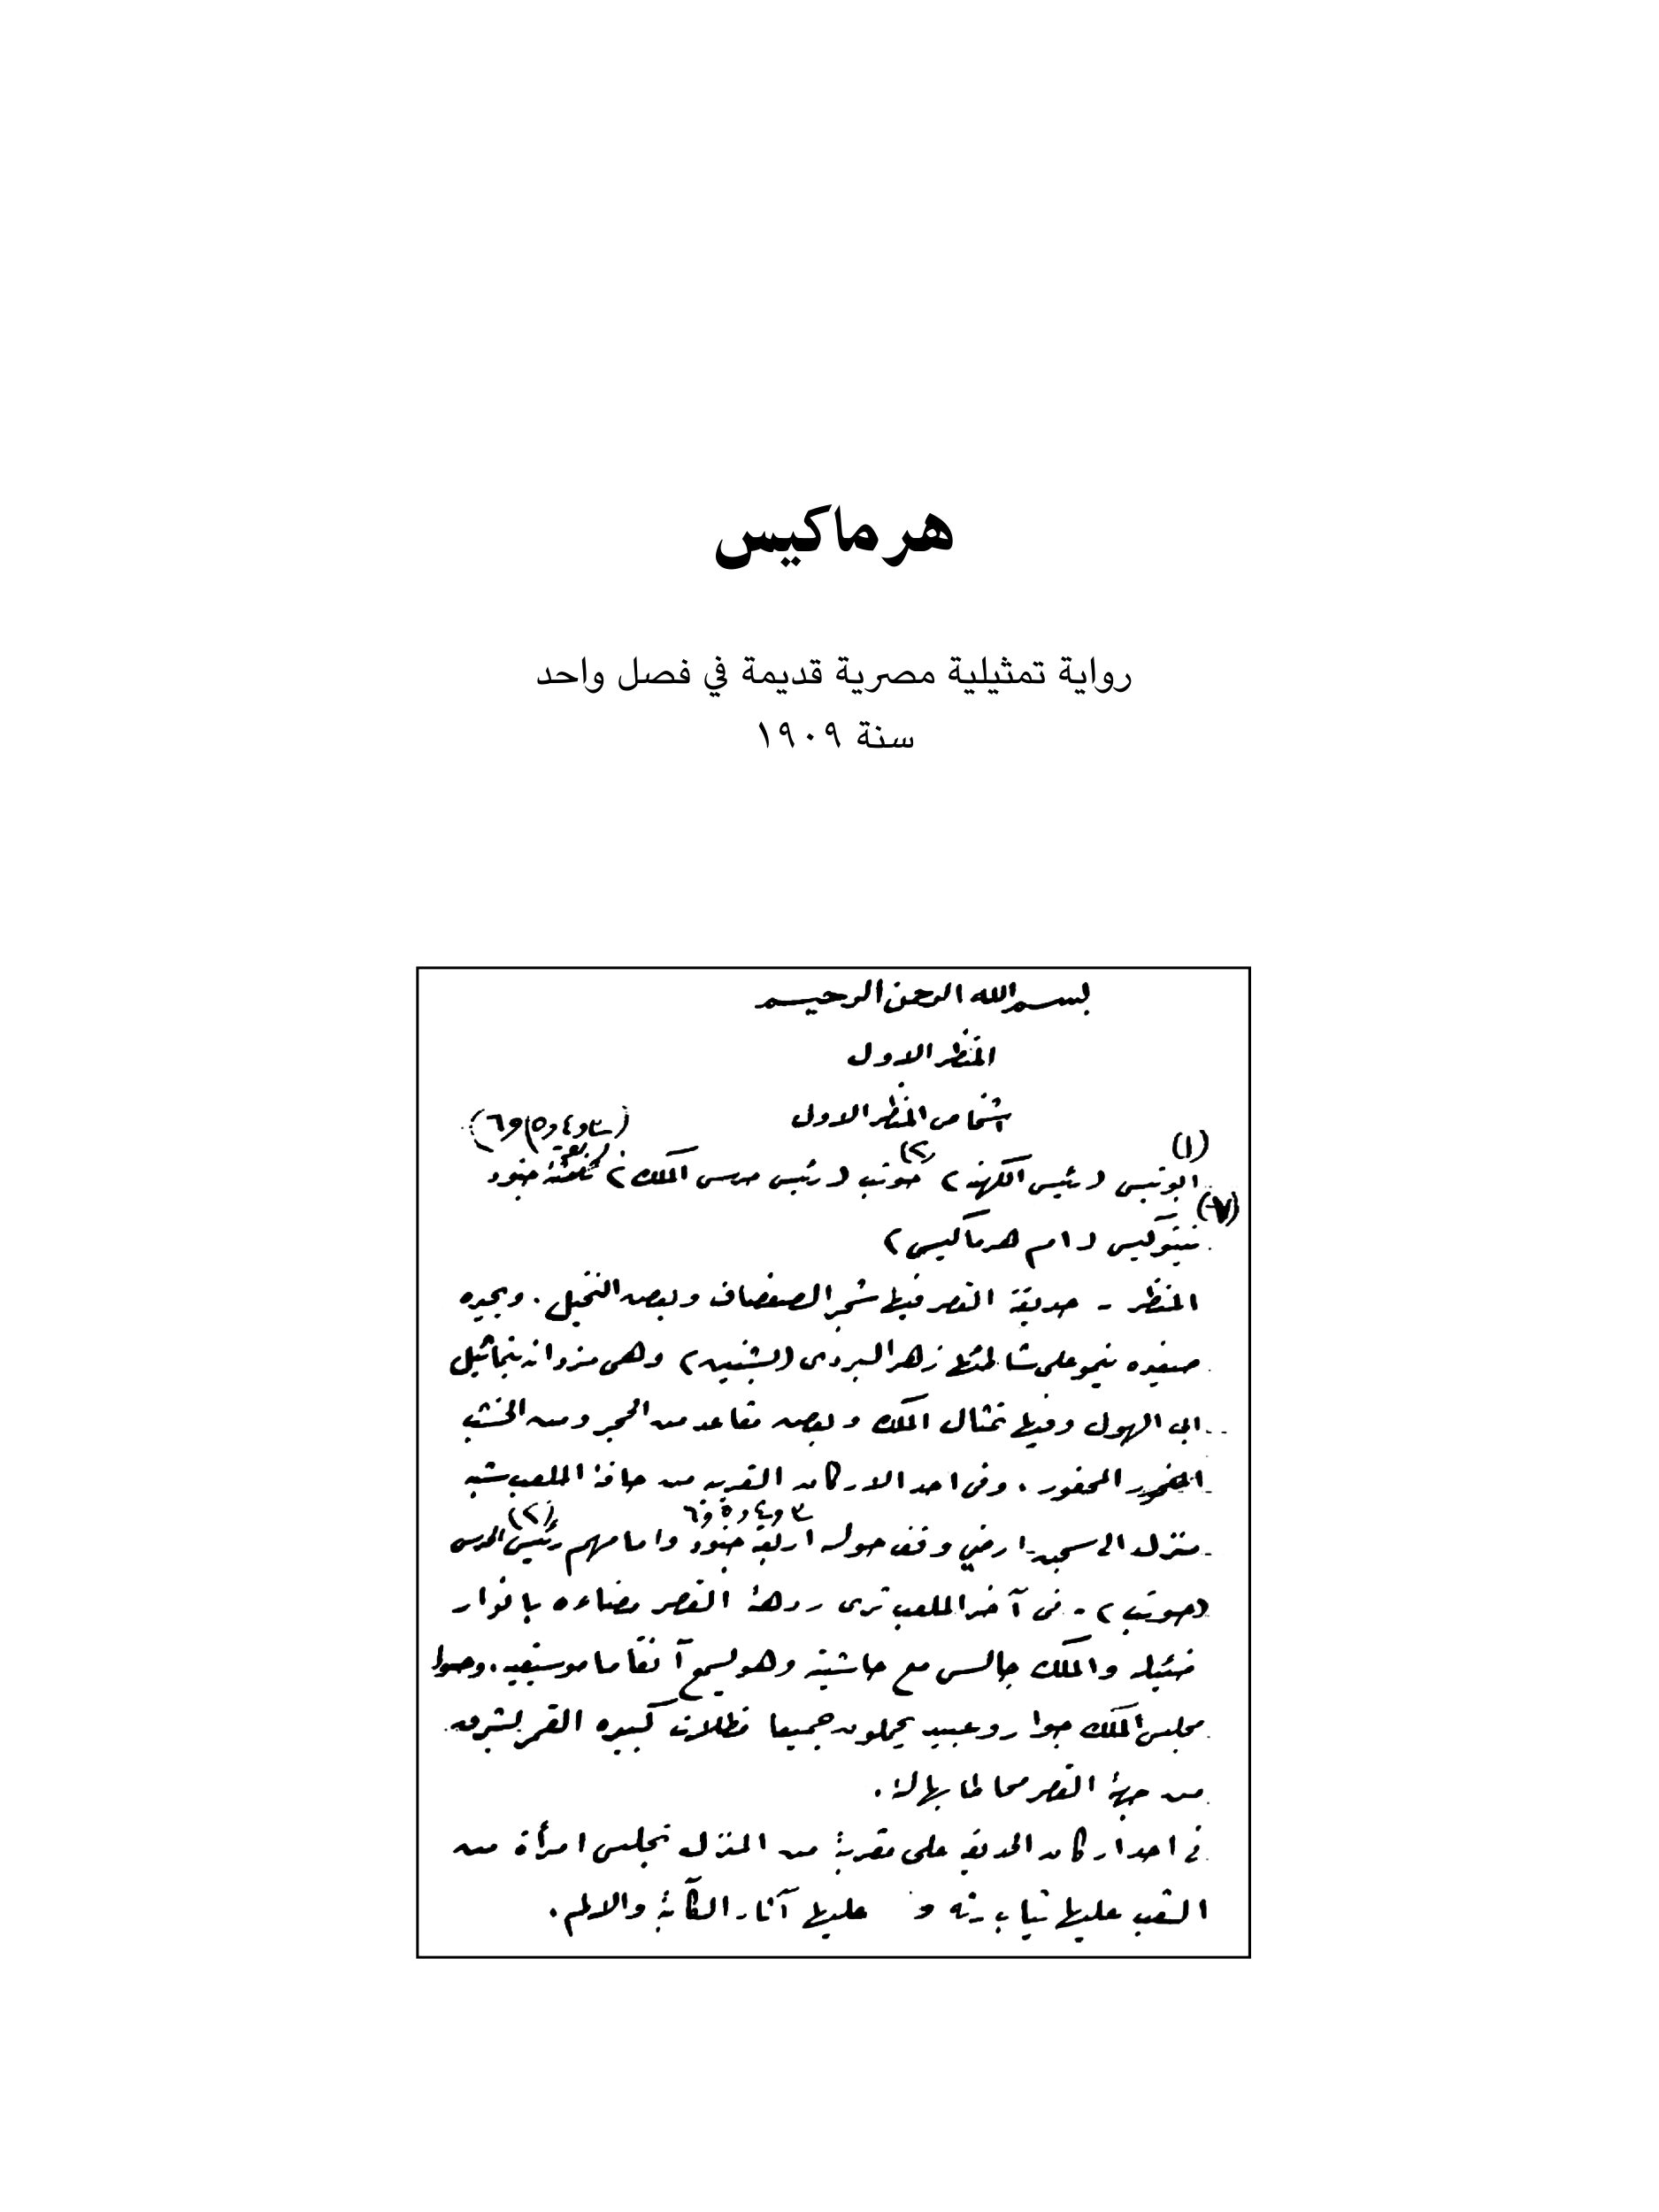 هرماكيس
رواية تمثيلية مصرية قديمة في فصل واحد
سنة ١٩٠٩
بسم الله الرحمن الرحيم
المنظر الاول
اشخاص المنظر الاول
(١) (٢) (٣ و٤ و٥ و٦)
ابوتيس (رئيس الكهنة) حوتب (رئيس حرس الملك) جنود
(٧)
نيتوكيس (ام هرماكيس)
المنظر - حديقة القصر فيها شجر الصفصاف وبعض النخيل . وبحيره
صغيره ينمو على شاطئها زهر البردى (البشنين) وهى مزدانه بتماثيل
ابى الهول وفيها تمثال الملك وبعض مقاعد من الحجر ومن الخشب
المحفور . وفى احد الاركان القريبه من حافة الملعب شبه
٣ و٤ و٥ و٦ (٢)
منزل الى سجن ارضي وقف حوله اربعة جنود وامامهم رئيس الحرس
(حوتب) - فى آخر الملعب ترى ردهة القصر مضاءه بانوار
ضئيله والملك جالس مع حاشيته وهو يسمع آنغاما موسيقيه . وحول
مجلس الملك جوار وعبيد يحملون جميعا مظلات كبيره القمر يشرق
من جهة القصر محاطا بهالة .
فى احد اركان الحديقه على مقربة من المنزل تجلس امرأة من
الشعب عليها ثياب رثه و عليها آثار الكآبة والالم .